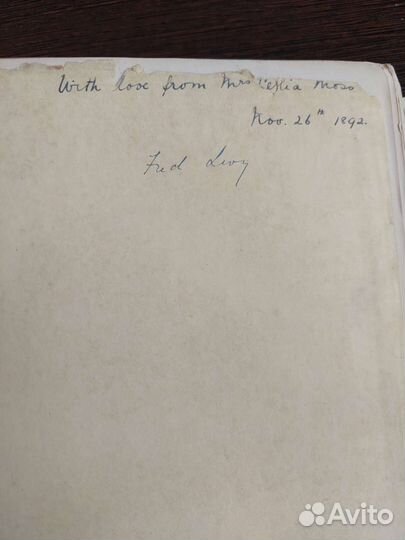 With love from Mrs Moss
Nov. 26th 1892.
Fred Levy
Avito